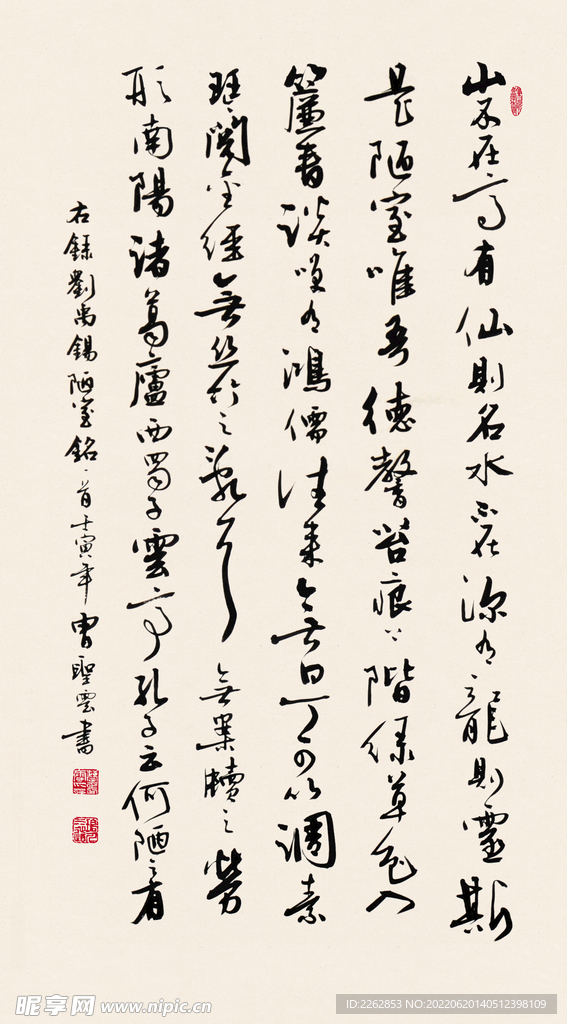 山不在高有仙則名水不在深有龍則靈斯
是陋室唯吾德馨苔痕上階綠草色入
簾青談笑有鴻儒往來無白丁可以調素
琴閱金經無絲竹之亂耳無案牘之勞
形南陽諸葛廬西蜀子雲亭孔子云何陋之有
右錄劉禹錫陋室銘一首壬寅年曹聖雲書
昵享网 www.nipic.cn
ID:2262853 NO:20220620140512398109